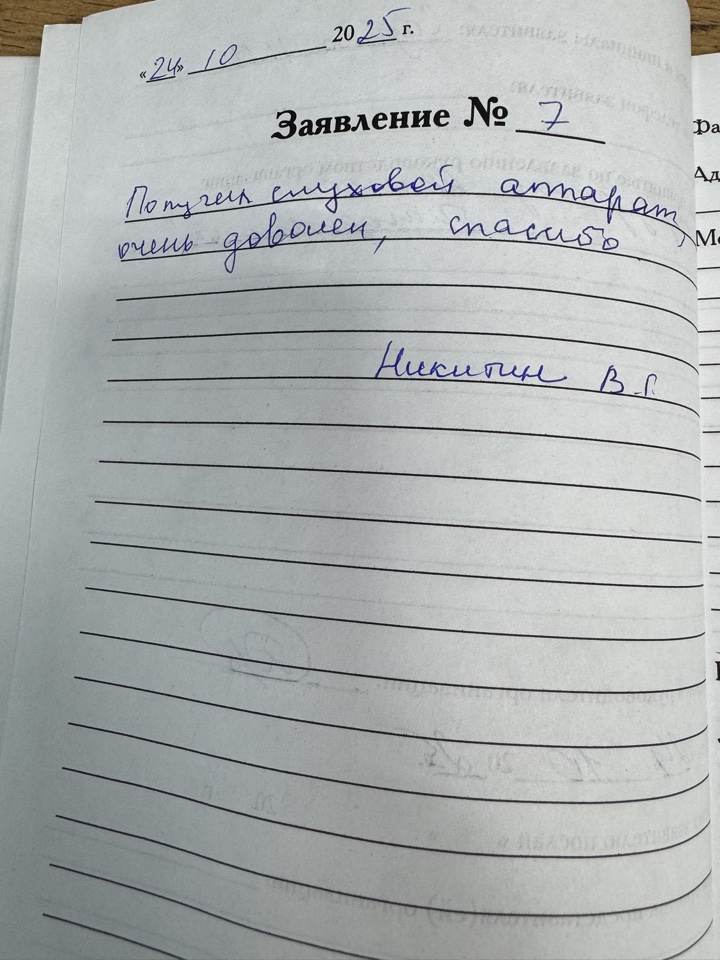 «24» 10 2025 г.
Заявление № 7
Получил слуховой аппарат,
очень доволен, спасибо
Никитин В.Г.
Фа
Ад